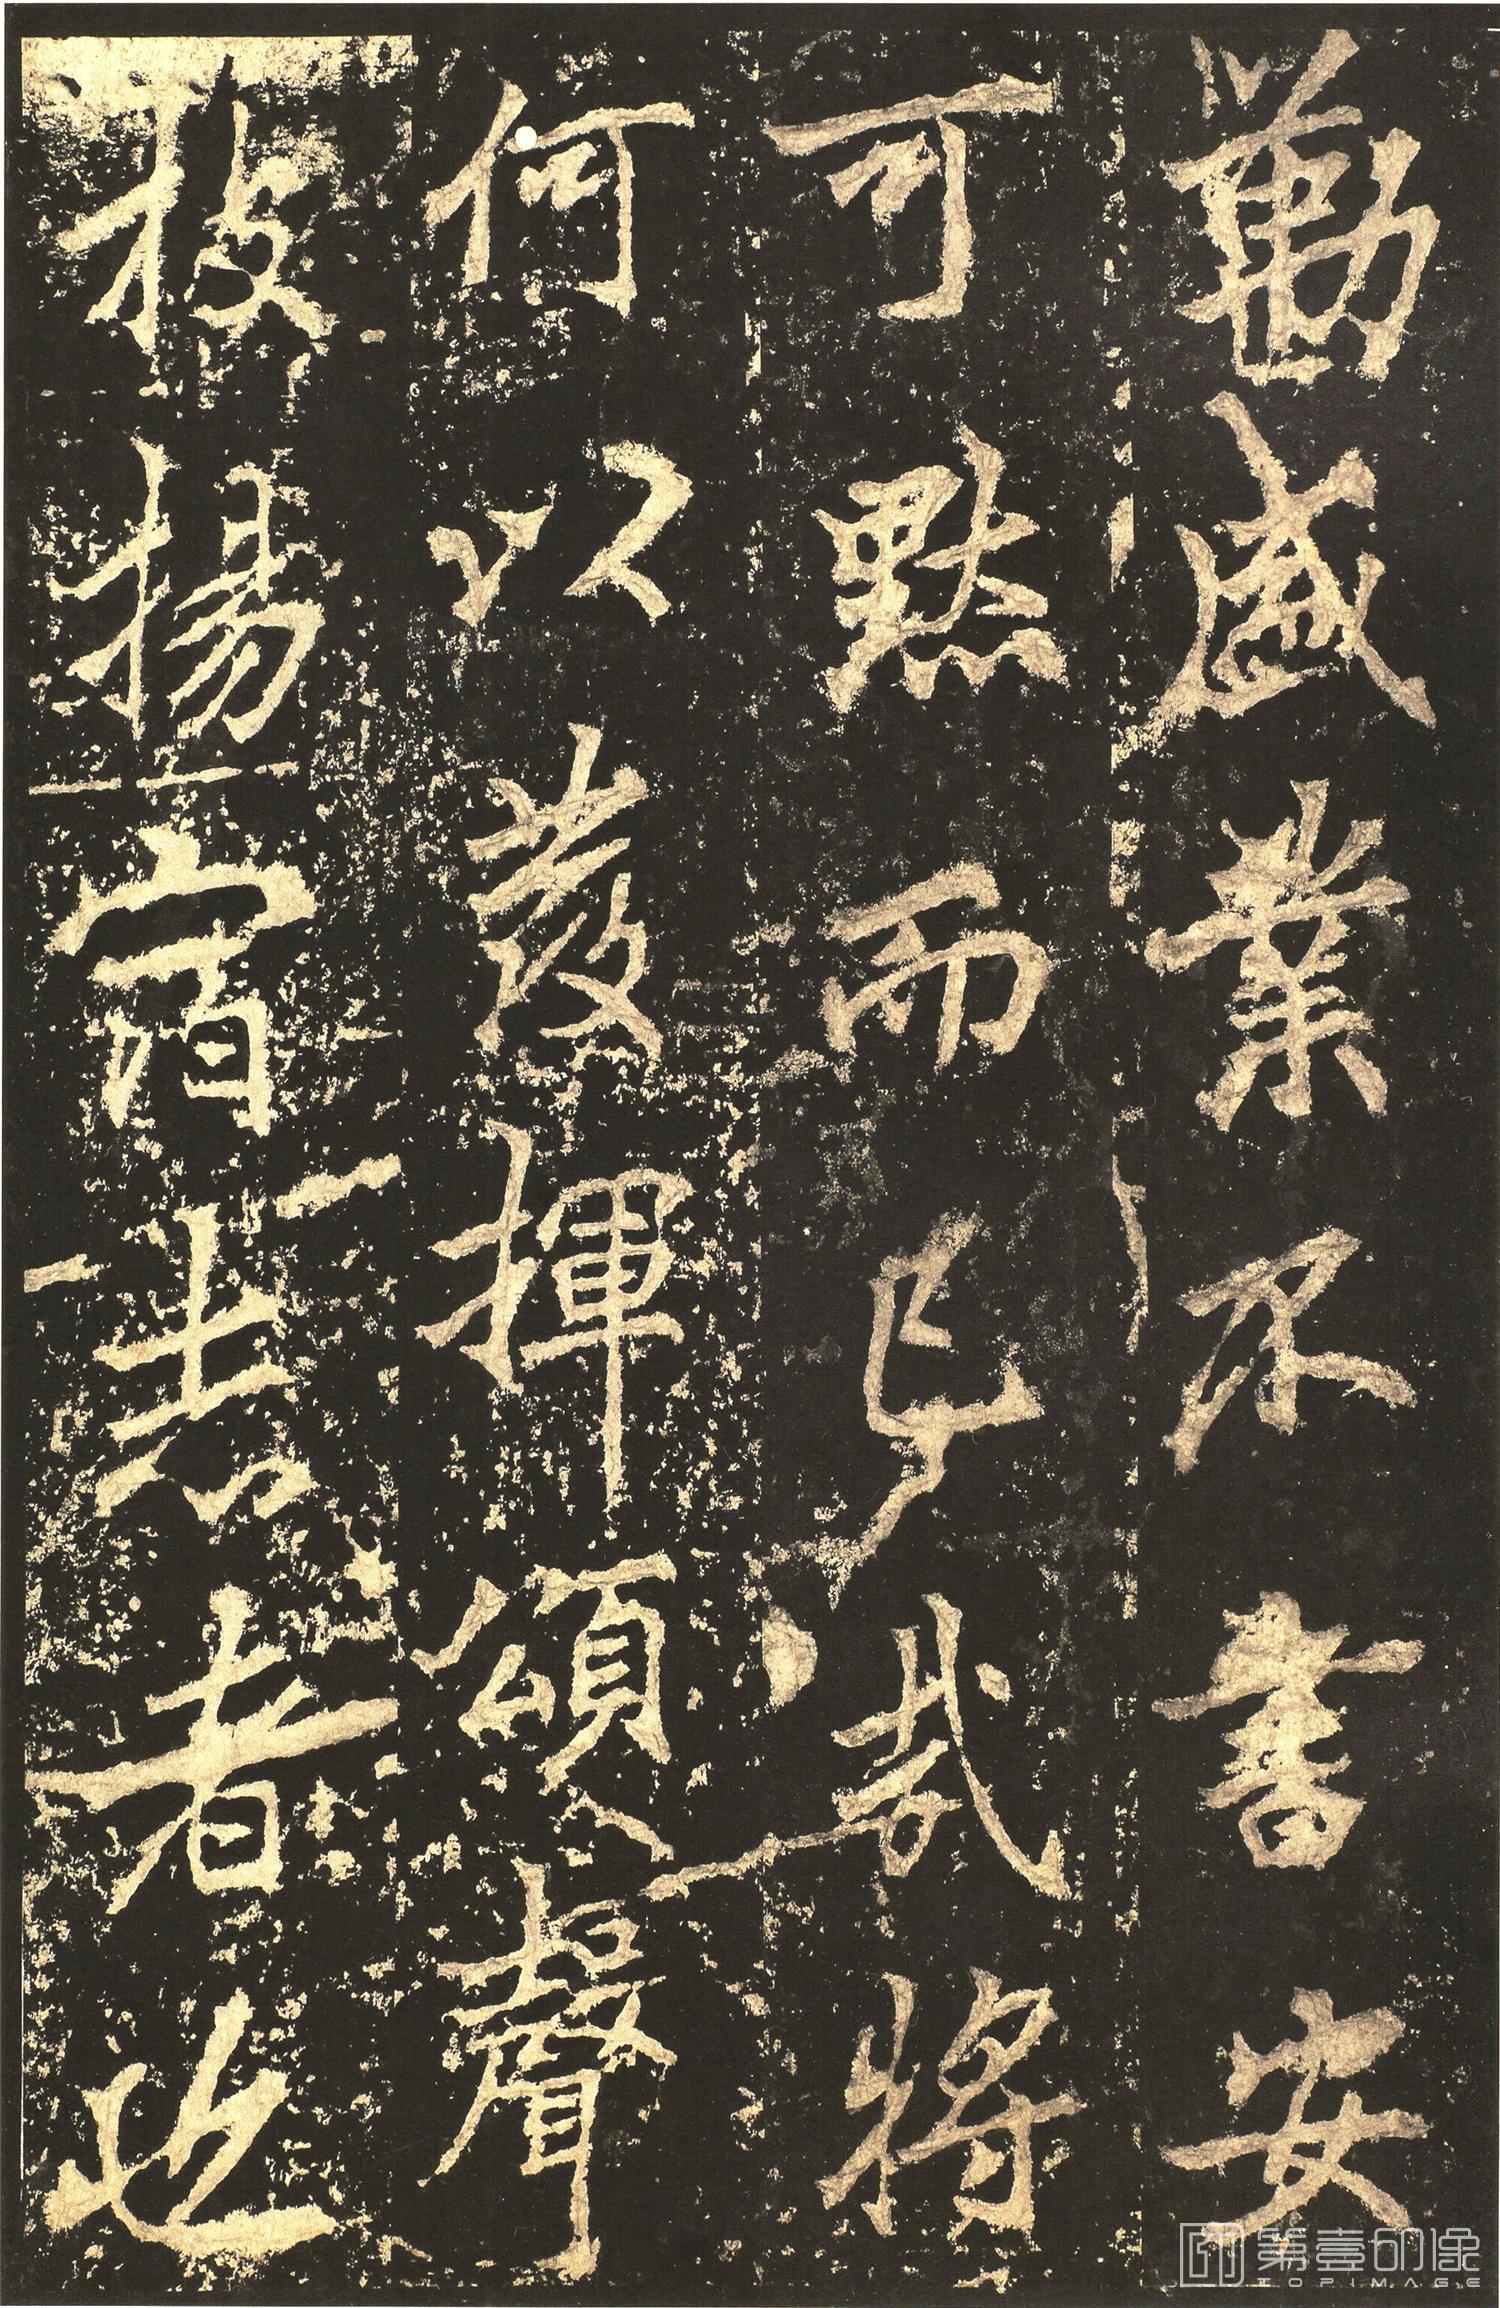 盛業不書安
可默而已哉將
何以發揮頌聲
披揚宿志者也
第壹印像
TOPIMAGE